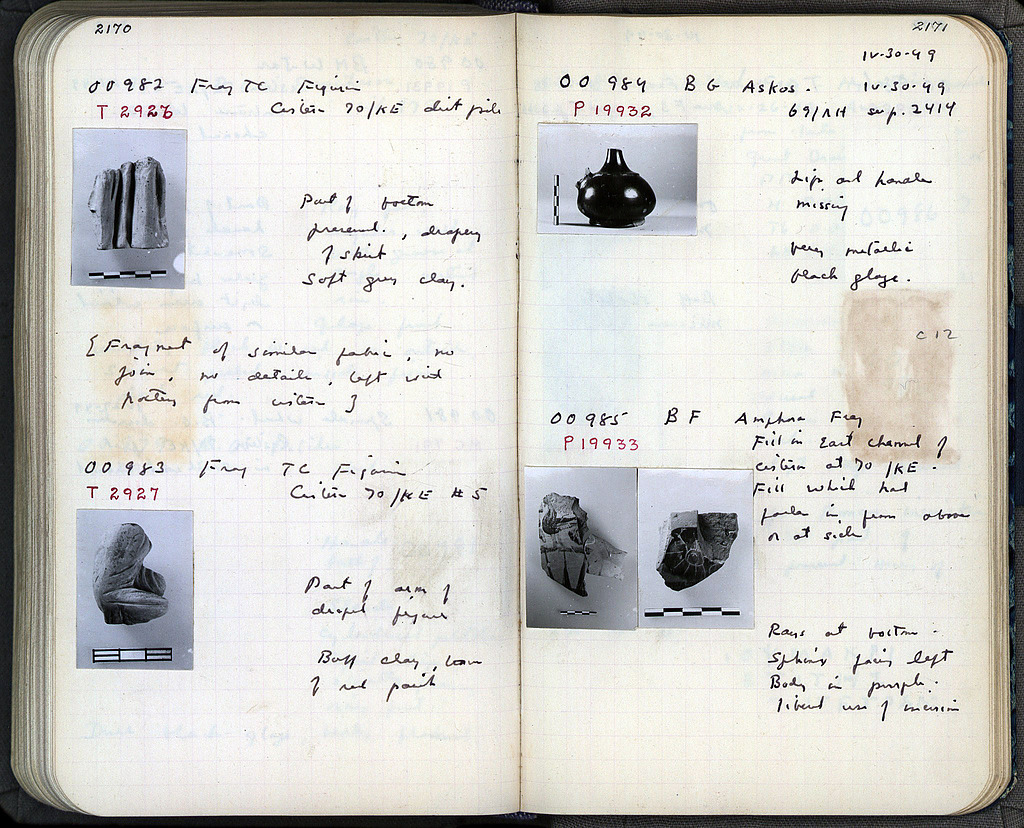 2170
OO 982 Frag TC Figurine
T 2926
Cistern 70/KE dirt pile
Part of bottom
preserved., drapery
of skirt
Soft grey clay.
{ Fragment of similar fabric, no
join, no details, left with
pottery from cistern }
OO 983 Frag TC Figurine
T 2927
Cistern 70/KE #5
Part of arm of
draped figure
Buff clay, traces
of red paint
2171
IV-30-49
OO 984 BG Askos. IV-30-49
P 19932
69/ΛH sup. 2414
Lip and handle
missing
very metallic
black glaze.
C 12
OO 985 BF Amphora Frag
P 19933
Fill in East channel of
cistern at 70/KE.
Fill which had
fallen in from above
or at side
Rays at bottom.
Sphinx facing left
Body in purple.
liberal use of incision